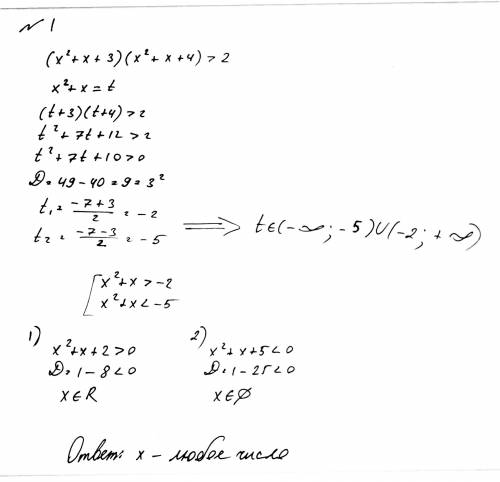 № 1
(x²+x+3)(x²+x+4)>2
x²+x=t
(t+3)(t+4)>2
t²+7t+12>2
t²+7t+10>0
D=49-40=9=3²
t₁=(-7+3)/2=-2
t₂=(-7-3)/2=-5 ⟹ t∈(-∞;-5)∪(-2;+∞)
[x²+x>-2
x²+x<-5
1) 2)
x²+x+2>0 x²+x+5<0
D=1-8<0 D=1-25<0
x∈R x∈∅
Ответ: x - любое число